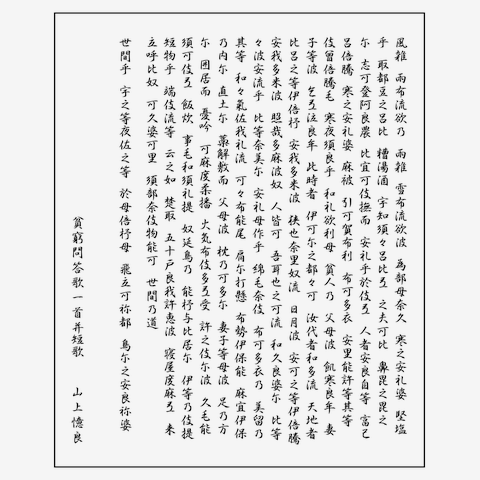 風雑 雨布流欲乃 雨雑 雪布流欲波 為部母奈久 寒之安礼婆 堅塩
乎 取都豆之呂比 糟湯酒 宇知須々呂比弖 之夫可比 鼻毘之毘之
尓 志可登阿良農 比宜可伎撫而 安礼乎於伎弖 人者安良自等 富己
呂倍騰 寒之安礼婆 麻被 引可賀布利 布可多衣 安里能許等其等
伎曽倍騰毛 寒夜須良乎 和礼欲利母 貧人乃 父母波 飢寒良牟 妻
子等波 乞弖泣良牟 此時者 伊可尓之都々可 汝代者和多流 天地者
比呂之等伊倍杼 安我多米波 狭也奈里奴流 日月波 安可之等伊倍騰
安我多米波 照哉多麻波奴 人皆可 吾耳也之可流 和久良婆尓 比等
々波安流乎 比等奈美尓 安礼母作乎 綿毛奈伎 布可多衣乃 美留乃
其等 和々氣佐我礼流 可々布能尾 肩尓打懸 布勢伊保能 麻宜伊保
乃内尓 直土尓 藁解敷而 父母波 枕乃可多尓 妻子等母波 足乃方
尓 囲居而 憂吟 可麻度柔播 火気布伎多弖受 許之伎尓波 久毛能
須可伎弖 飯炊 事毛和須礼提 奴延鳥乃 能杼与比居尓 伊等乃伎提
短物乎 端伎流等 云之如 楚取 五十戸良我許恵波 寝屋度麻弖 来
立呼比奴 可久婆可里 須部奈伎物能可 世間乃道
世間乎 宇之等夜佐之等 於母倍杼母 飛立可祢都 鳥尓之安良祢婆
貧窮問答歌一首并短歌 山上憶良